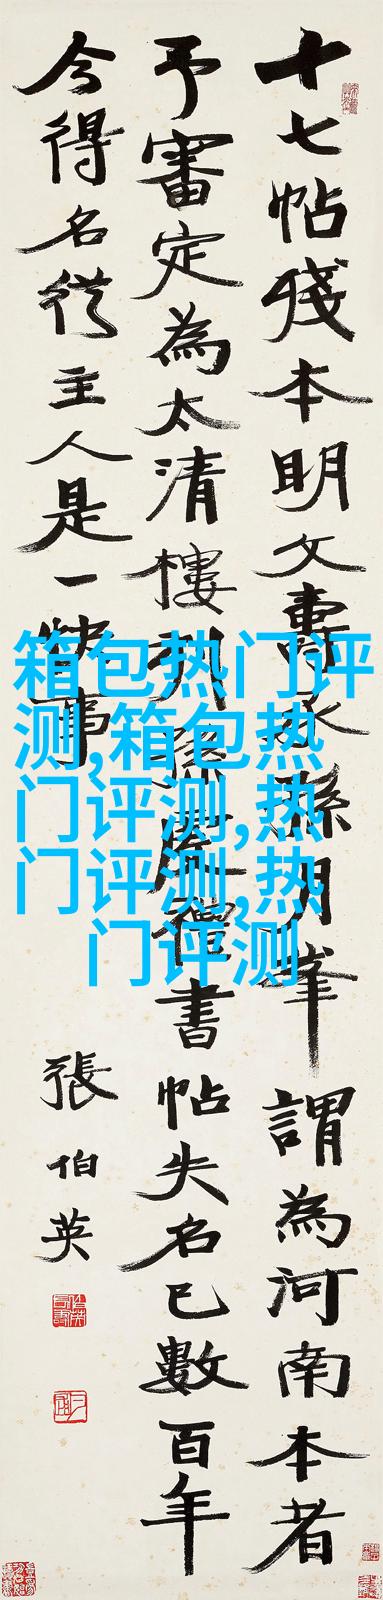 十七帖殘本明文壽承孫月峯謂為河南本者
予審定為太清樓刻孫虔禮書帖失名已數百年
今得名從主人是一快事
張伯英
箱包热门评
测,箱包热
门评测,热
门评测,热
门评测